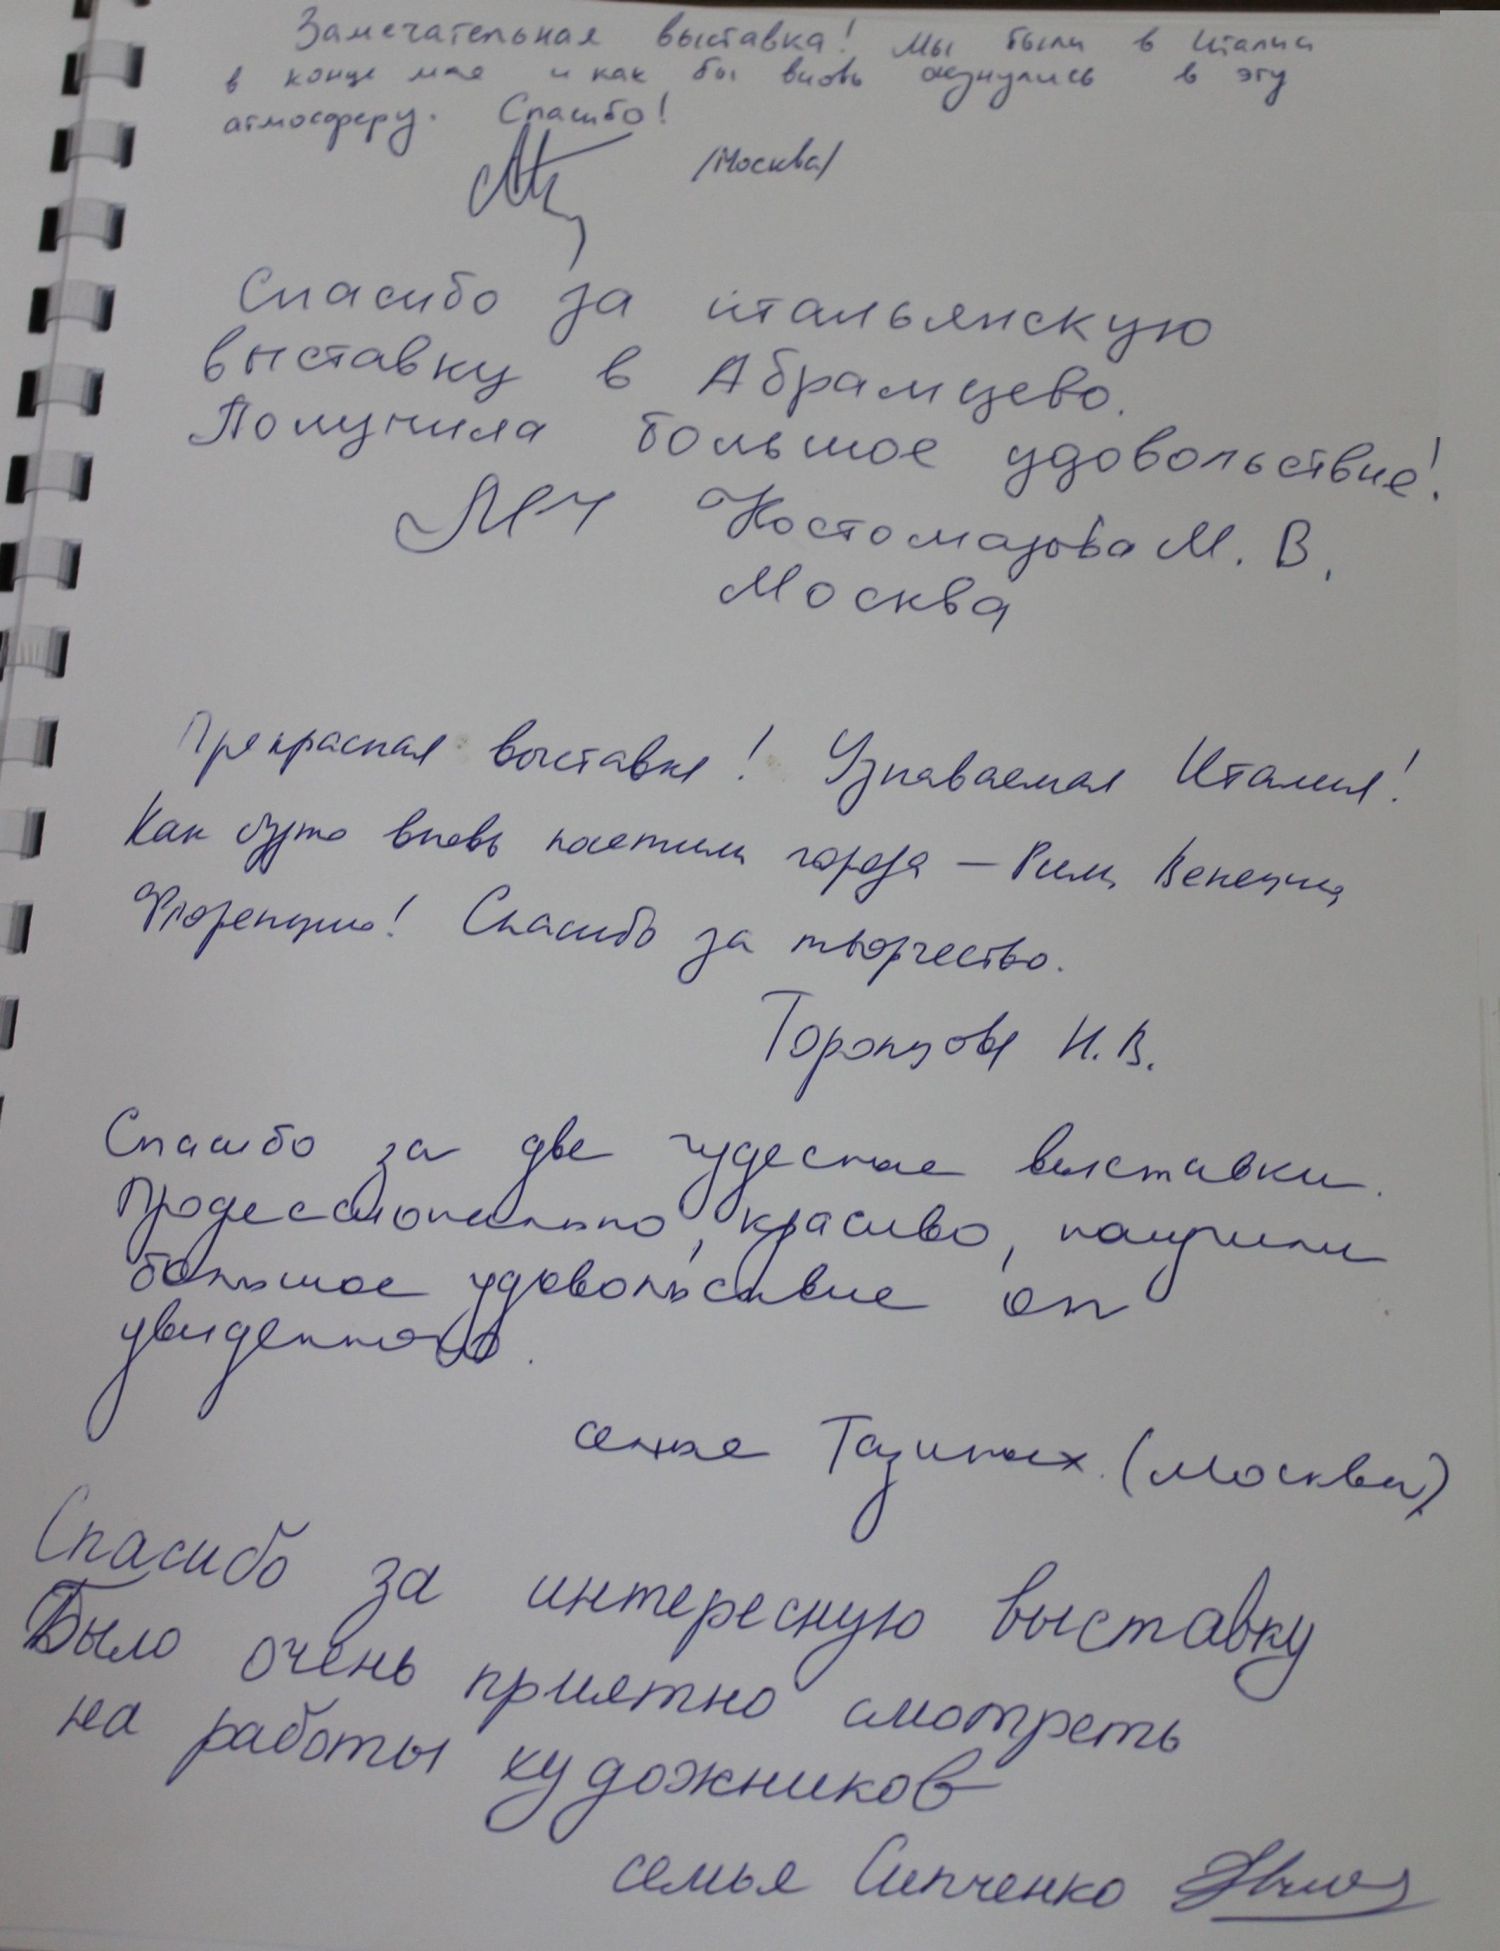 Замечательная выставка! Мы были в Италии
в конце мая и как бы вновь окунулись в эту
атмосферу. Спасибо!
/Москва/
Спасибо за итальянскую
выставку в Абрамцево.
Получила большое удовольствие!
Костомарова М. В.
Москва
Прекрасная выставка! Узнаваемая Италия!
Как будто вновь посетили города – Рим, Венецию,
Флоренцию! Спасибо за творчество.
Торопцова Н.В.
Спасибо за две чудесные выставки.
Профессионально, красиво, получили
большое удовольствие от
увиденного.
семья Тазиных. (Москва)
Спасибо за интересную выставку
Было очень приятно смотреть
на работы художников
семья Сипченко